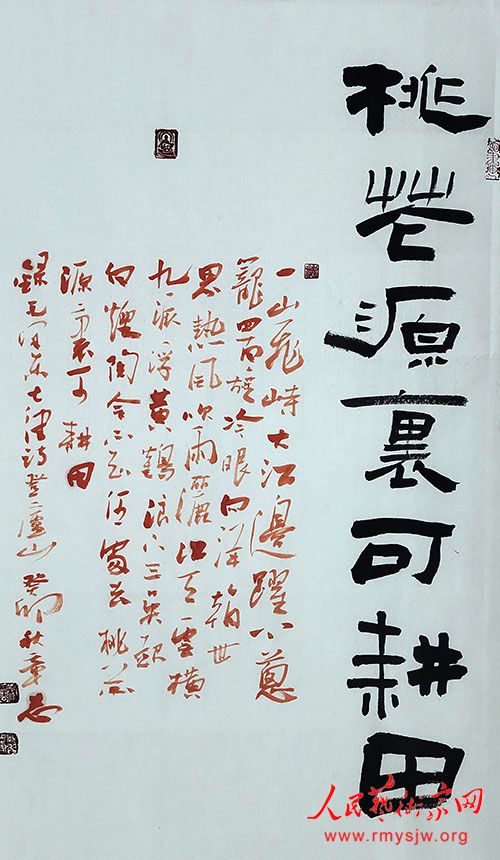 桃花源裏可耕田
一山飛峙大江邊躍上蔥
籠四百旋冷眼向洋看世
界熱風吹雨灑江天雲橫
九派浮黄鶴浪下三吳起
白煙陶令不知何處去桃花
源裏可耕田
錄毛澤東七律詩登廬山癸卯秋章
人民艺术家网
www.rmysjw.org